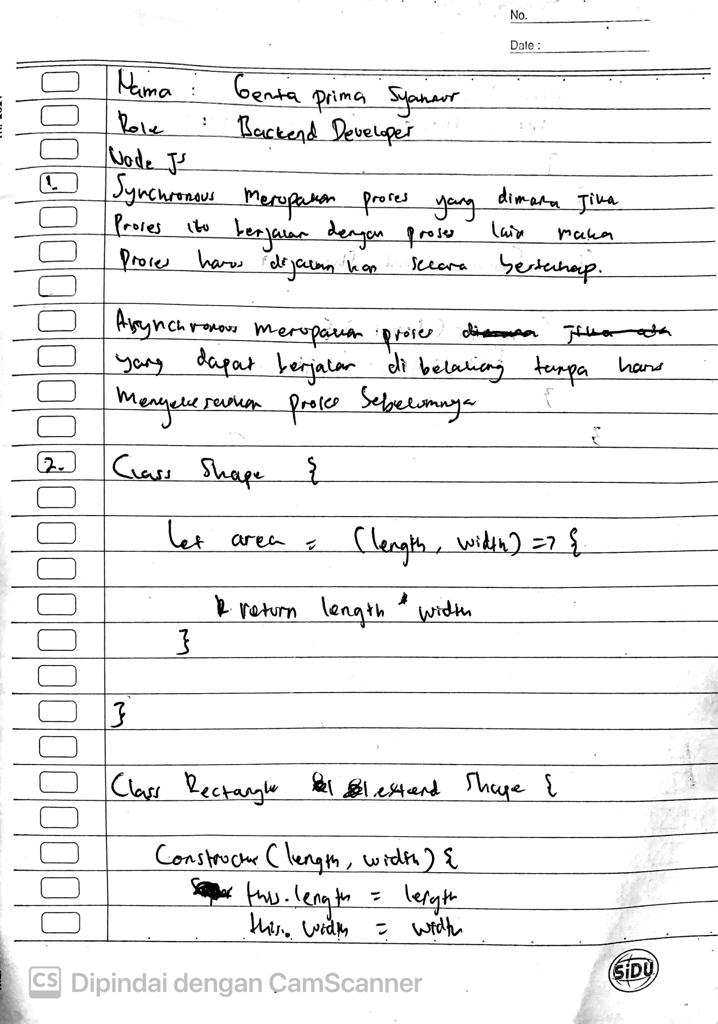 No.
Date :
Nama : Genta prima Syahnur
Role : Backend Developer
Node JS
1. Synchronous merupakan proses yang dimana jika
proses itu berjalan dengan proses lain maka
proses harus dijalankan secara bertahap.
Asynchronous merupakan proses
yang dapat berjalan di belakang tanpa harus
menyelesaikan proses sebelumnya
2. Class Shape {
let area = (length, width) => {
return length * width
}
}
Class Rectangle extend Shape {
Constructor (length, width) {
this.length = length
this.width = width
SiDU
CS Dipindai dengan CamScanner